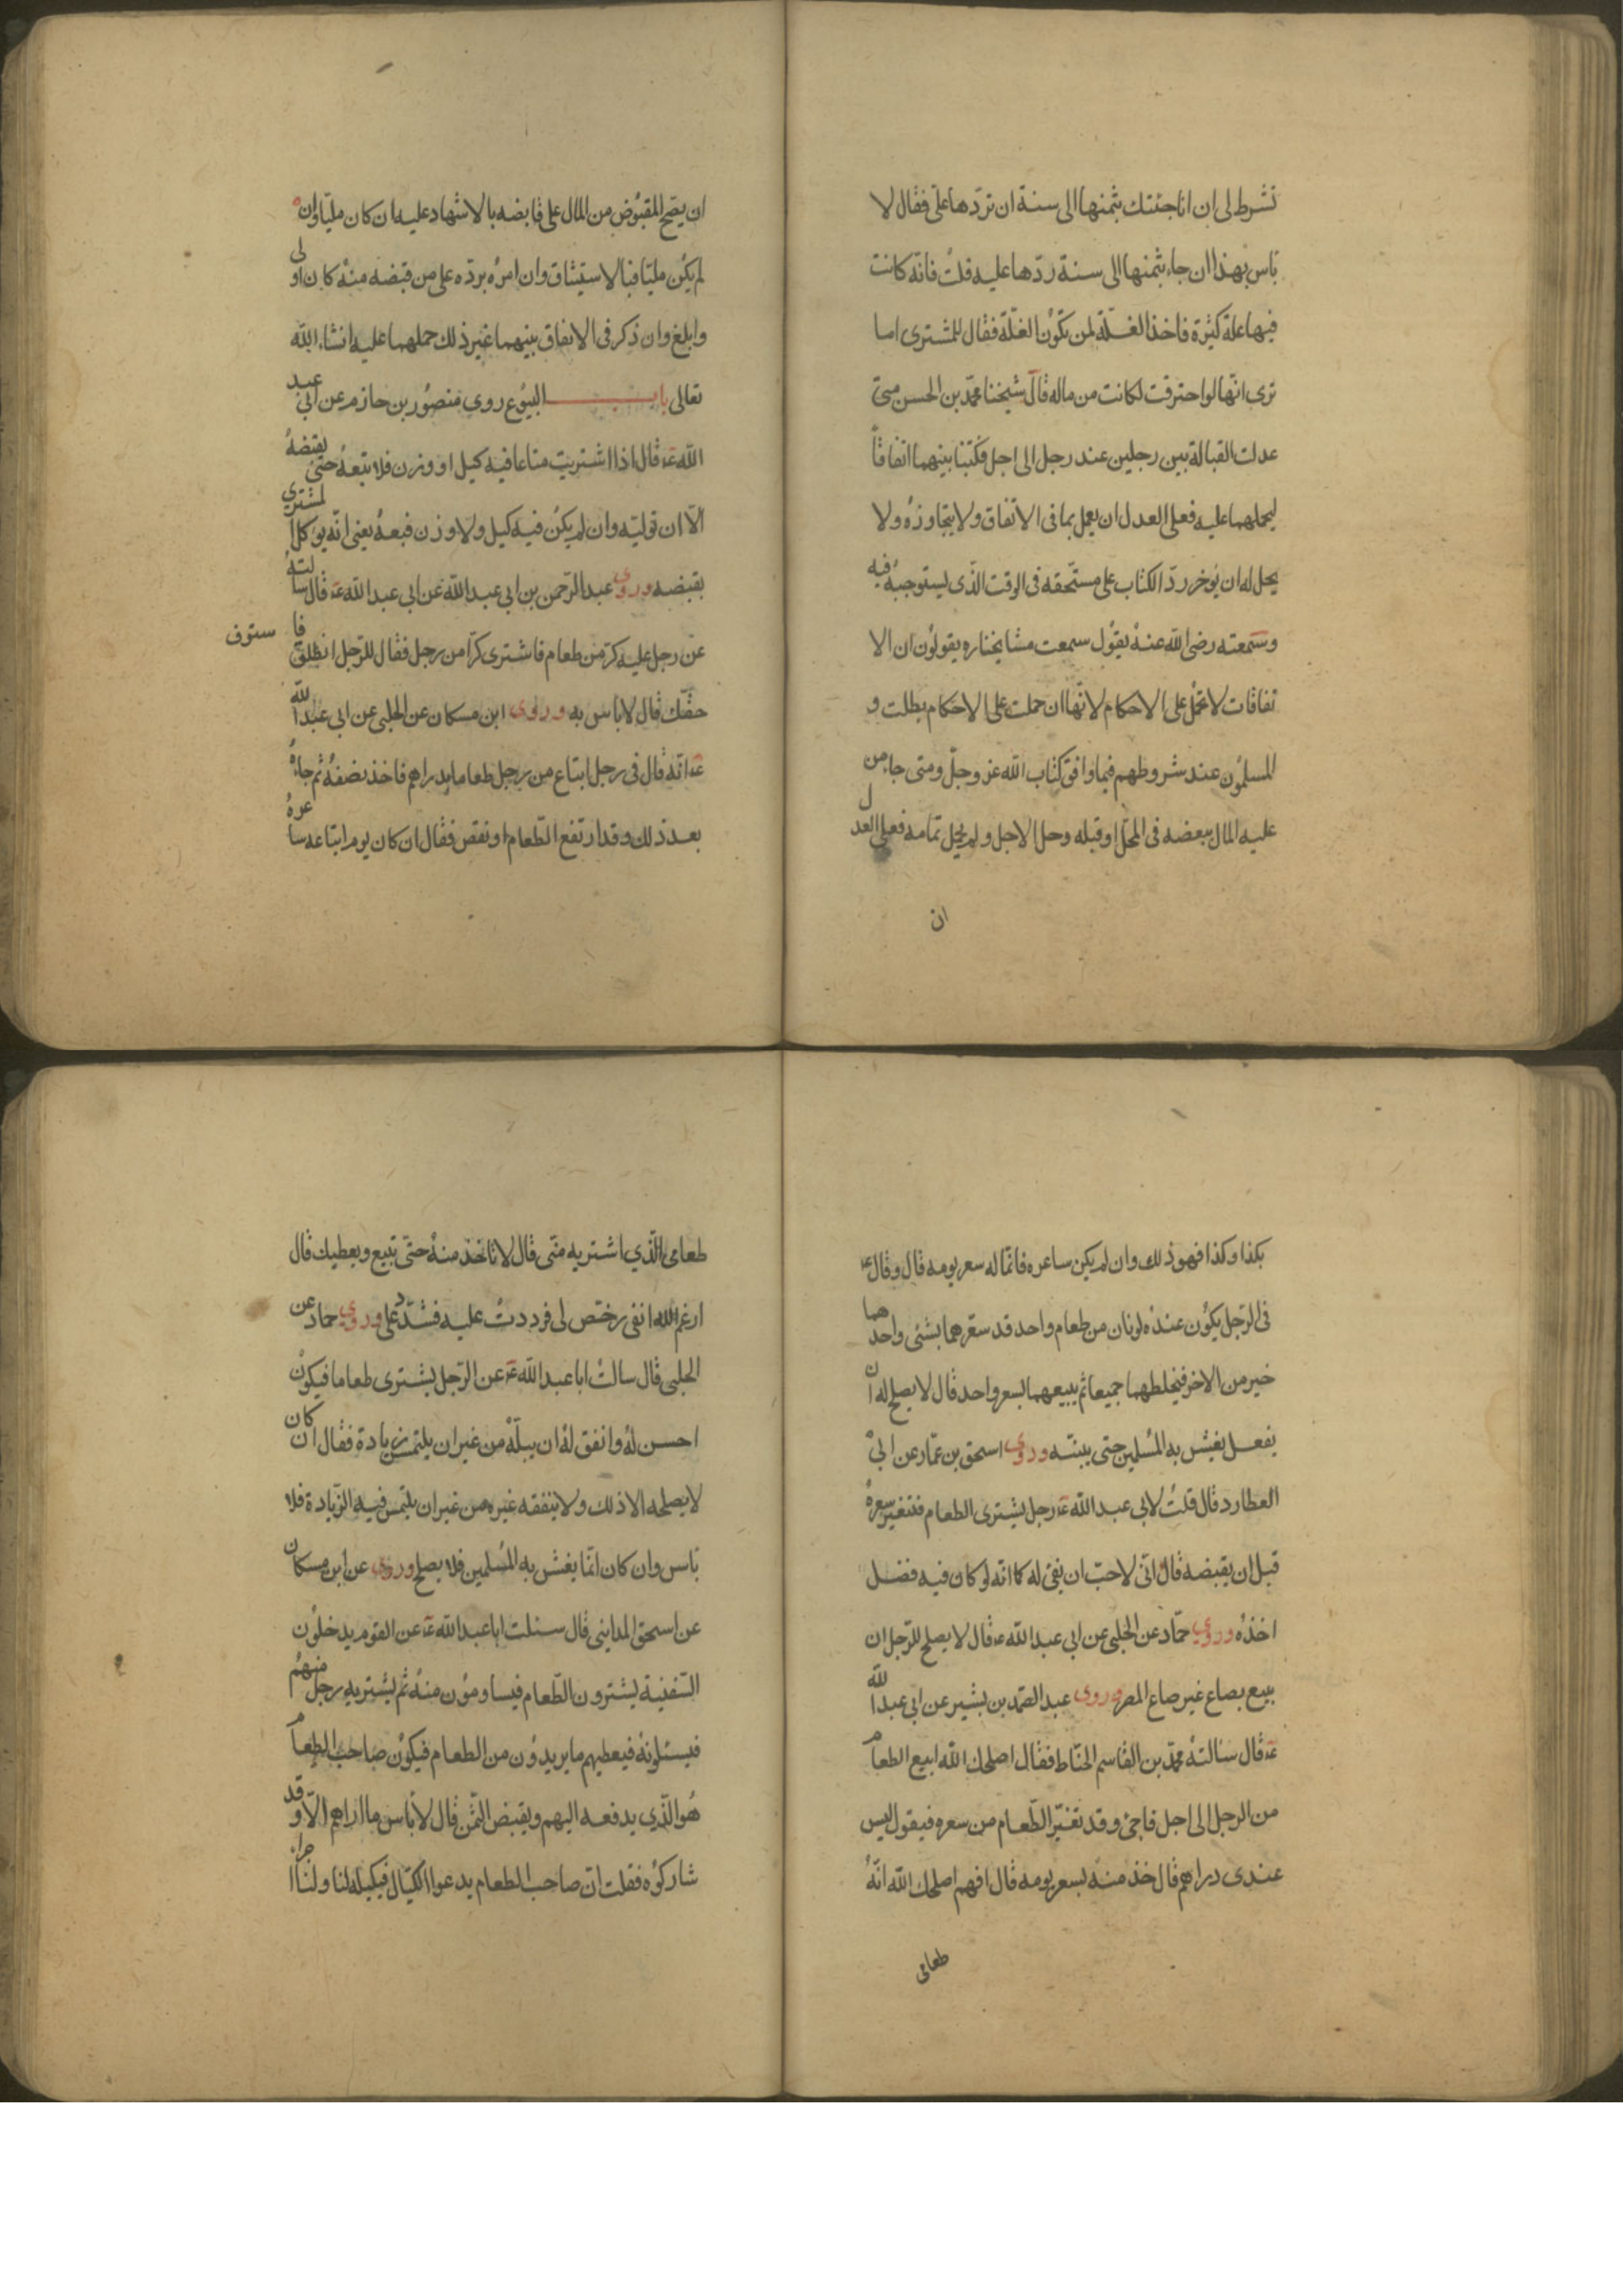 تشرط لى ان انا جئتك بثمنها الى سنة ان تردّها علىّ فقال لا
باس بهذا ان جاء بثمنها الى سنة ردّها عليه قلت فانّه كانت
فيها غلة كثيرة فاخذ الغلّة لمن تكون الغلّة فقال للمشترى اما
ترى انّها لو احترقت لكانت من ماله قال شيخنا محمّد بن الحسن متى
عدلت القبالة بين رجلين عند رجل الى اجل فكتبا بينهما اتفاقاً
ليحملهما عليه فعلى العدل ان يعمل بما فى الاتفاق ولا يتجاوزه ولا
يحل له ان يوخر ردّ الكتاب على مستحقه فى الوقت الّذى يستوجبه فيه
وسمعته رضى الله عنه يقول سمعت مشايخنا ره يقولون ان الا
تفاقات لا تحمل على الاحكام لانّها ان حملت على الاحكام بطلت و
المسلمون عند شروطهم فيما وافق كتاب الله عز وجلّ ومتى جاء من
عليه المال ببعضه فى المحلّ او قبله وحل الاجل ولم يحل تمامه فعلى العدل
ان
ان يصحّ المقبوض من المال على قابضه بالاشهاد عليه ان كان مليّا وان
لم يكن مليّا فبالاستيثاق وان امره بردّه على من قبضه منه كان اولى
وابلغ وان ذكر فى الاتفاق بينهما غير ذلك حملهما عليه انشاء الله
تعالى باب البيوع روى منصور بن حازم عن ابى عبد
الله ع‍ قال اذا اشتريت متاعا فيه كيل او وزن فلا تبعه حتى تقبضه
الّا ان توليه وان لم يكن فيه كيل ولا وزن فبعه يعنى انّه يوكل المشترى
بقبضه وروى عبد الرّحمن بن ابى عبد الله عن ابى عبد الله ع‍ قال سالته
عن رجل عليه كرّ من طعام فاشترى كرّا من رجل فقال للرّجل انطلق فا ستوف
حقّك قال لا باس به وروى ابن مسكان عن الحلبى عن ابى عبد الله
ع‍ انّه قال فى رجل ابتاع من رجل طعاما بدراهم فاخذ نصفه ثم جاء
بعد ذلك وقد ارتفع الطّعام او نقص فقال ان كان يوم ابتاعه ساعره
بكذا وكذا فهو ذلك وان لم يكن ساعره فانّما له سعر يومه قال وقال ع‍
فى الرّجل يكون عنده لونان من طعام واحد قد سعّرهما بشئى واحدهما
خير من الاخر فيخلطهما جميعا ثم يبيعهما بسعر واحد قال لا يصلح له ان
يفعل يغش به المسلمين حتى يبينه وروى اسحق بن عمّار عن ابى
العطارد قال قلت لابى عبد الله ع‍ رجل يشترى الطعام فتغير سعره
قبل ان يقبضه قال انّى لاحبّ ان يفى له كما انّه لو كان فيه فضل
اخذه وروى حمّاد عن الحلبى عن ابى عبد الله ع‍ قال لا يصلح للرّجل ان
يبيع بصاع غير صاع المصر وروى عبد الصّمد بن بشير عن ابى عبد الله
ع‍ قال سالته محمّد بن القاسم الحنّاط فقال اصلحك الله ابيع الطعام
من الرجل الى اجل فاجئ وقد تغيّر الطّعام من سعره فيقول ليس
عندى دراهم قال خذ منه بسعر يومه قال افهم اصلحك الله انّه
طعامى
طعامى الّذي اشتريه منّى قال لا تاخذ منه حتّى تبيع ويعطيك قال
ارغم الله انفى رخّص لى فرددت عليه فشدّد على وروى حماد عن
الحلبى قال سالت ابا عبد الله ع‍ عن الرّجل يشترى طعاما فيكون
احسن له وانفق له ان يبلّه من غير ان يلتمس زيادة فقال ان كان
لا يصلحه الا ذلك ولا ينفقه غيره من غير ان يلتمس فيه الزّيادة فلا
باس وان كان انّما يغش به المسلمين فلا يصلح وروى عن ابن مسكان
عن اسحق المداينى قال سئلت ابا عبد الله ع‍ عن القوم يدخلون
السّفينة يشترون الطّعام فيساومون منه ثم يشتريه رجل منهم
فيسئلونه فيعطيهم ما يريدون من الطعام فيكون صاحب الطعام
هو الّذي يدفعه اليهم ويقبض الثّمن قال لا باس ما اراهم الّا وقد
شاركوه فقلت انّ صاحب الطعام يدعوا الكيّال فيكيله لنا ولنا اجراء